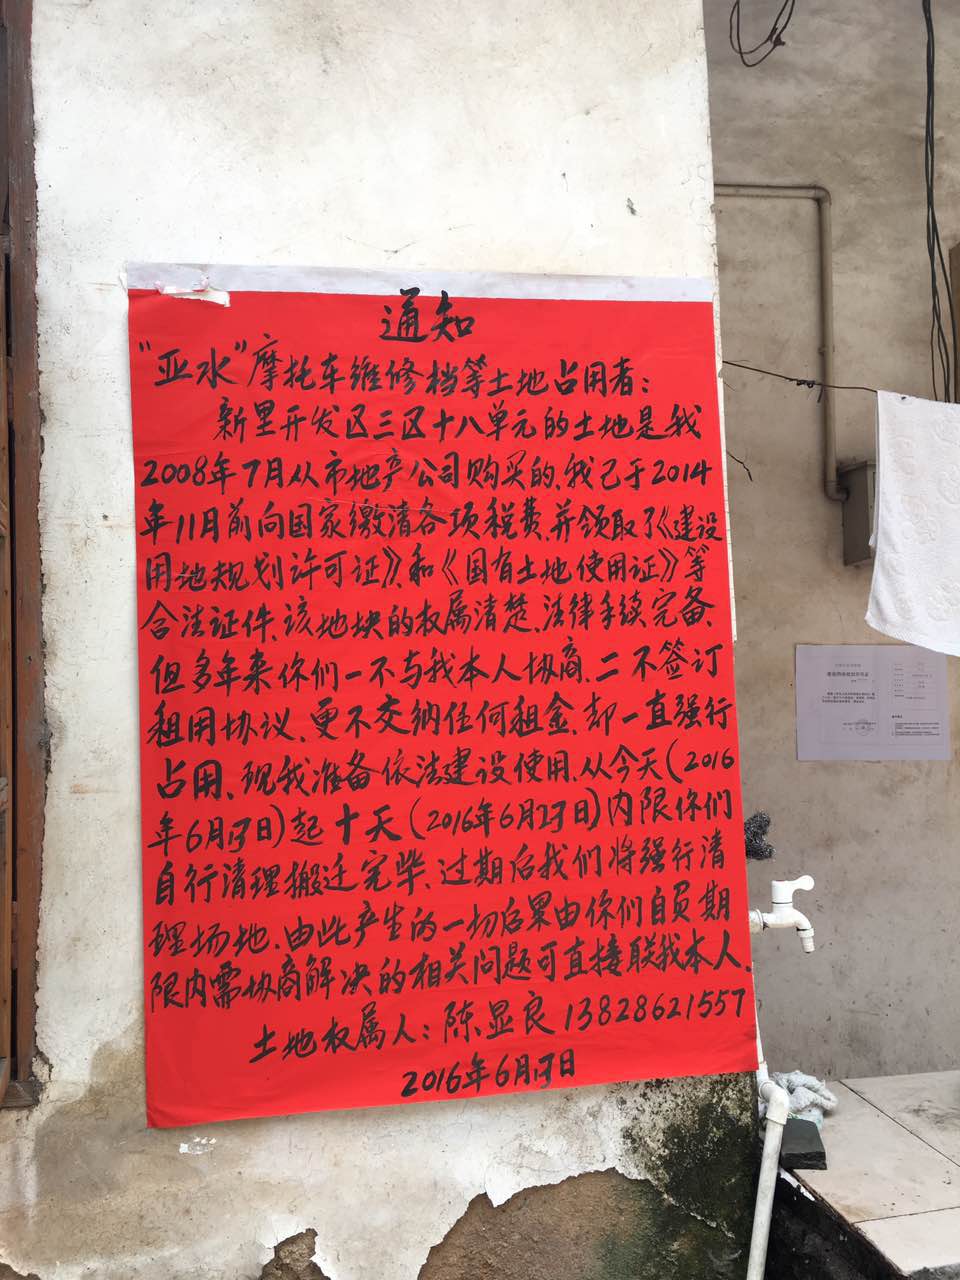 通知
“亚水”摩托车维修档等土地占用者：
新里开发区三区十八单元的土地是我
2008年7月从市地产公司购买的、我已于2014
年11月前向国家缴清各项税费、并领取了《建设
用地规划许可证》、和《国有土地使用证》等
合法证件、该地块的权属清楚、法律手续完备、
但多年来你们一不与我本人协商、二不签订
租用协议、更不交纳任何租金、却一直强行
占用、现我准备依法建设使用、从今天(2016
年6月17日)起十天(2016年6月27日)内限你们
自行清理搬迁完毕、过期后我们将强行清
理场地、由此产生的一切后果由你们自负期
限内需协商解决的相关问题可直接联我本人、
土地权属人：陈显良13828621557
2016年6月17日